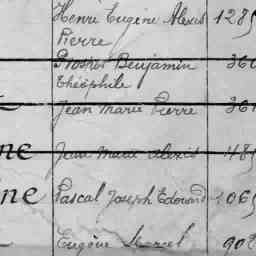 Henri Eugène Alexis 1285
Pierre
Prosper Benjamin 360
Théophile
Jean Marie Pierre 361
ne Jean Marie Alexis 485
ine Pascal Joseph Edouard 1065
Eugène Marcel 902